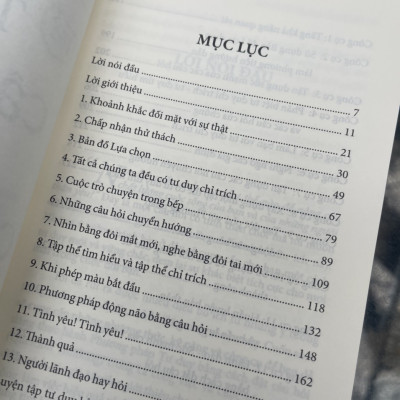 MỤC LỤC
Lời nói đầu 7
Lời giới thiệu 11
1. Khoảnh khắc đối mặt với sự thật 21
2. Chấp nhận thử thách 30
3. Bản đồ Lựa chọn 49
4. Tất cả chúng ta đều có tư duy chỉ trích 67
5. Cuộc trò chuyện trong bếp 79
6. Những câu hỏi chuyển hướng 89
7. Nhìn bằng đôi mắt mới, nghe bằng đôi tai mới 109
8. Tập thể tìm hiểu và tập thể chỉ trích 118
9. Khi phép màu bắt đầu 132
10. Phương pháp động não bằng câu hỏi 148
11. Tình yêu! Tình yêu! 162
12. Thành quả
13. Người lãnh đạo hay hỏi
uyện tập tư duy